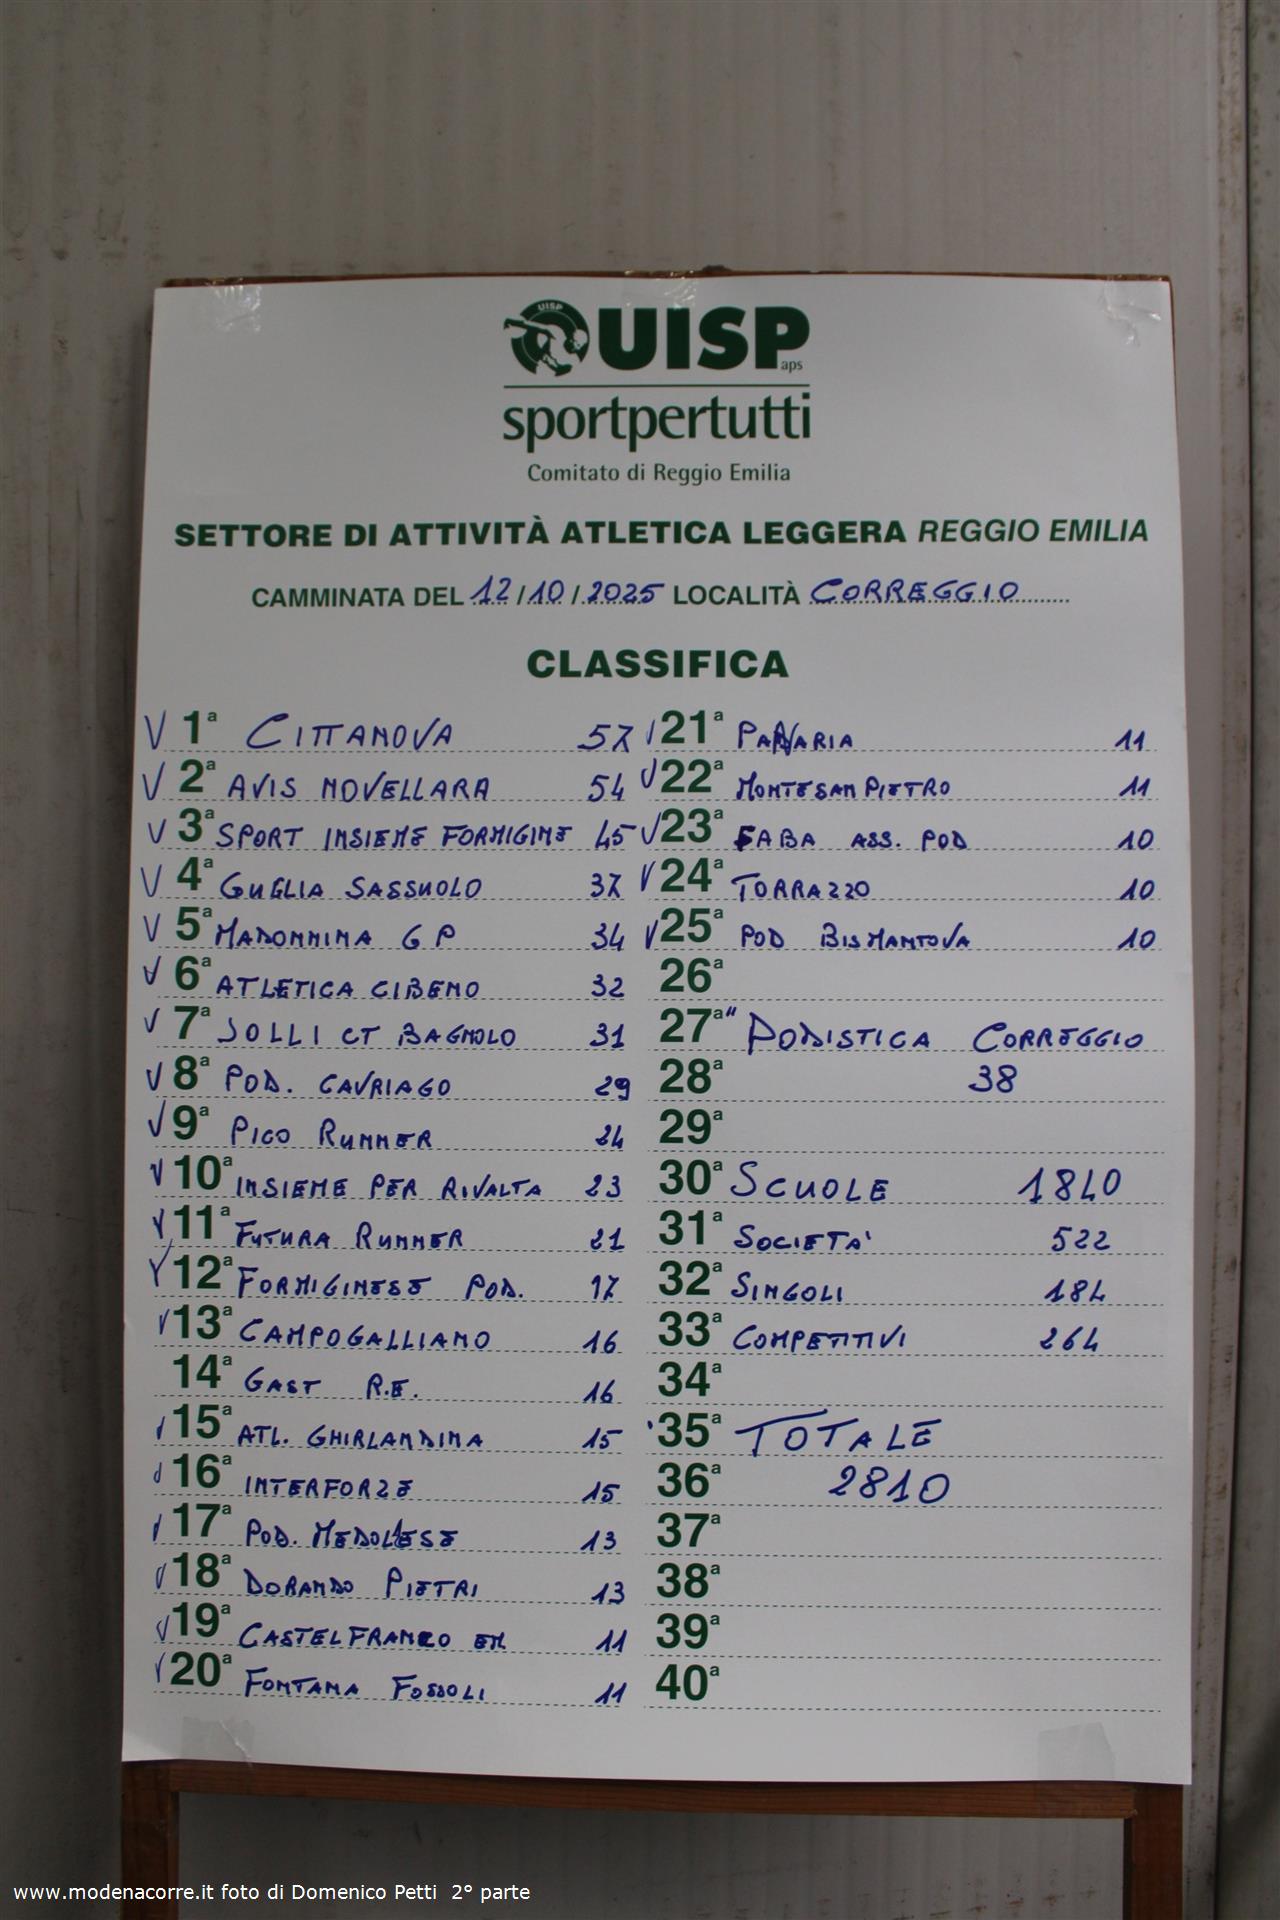 UISP
UISP
aps
sportpertutti
Comitato di Reggio Emilia
SETTORE DI ATTIVITÀ ATLETICA LEGGERA REGGIO EMILIA
CAMMINATA DEL 12/10/2025 LOCALITÀ CORREGGIO
CLASSIFICA
V 1ª CITTANOVA 57
V 2ª AVIS NOVELLARA 54
V 3ª SPORT INSIEME FORMIGINE 45
V 4ª GUGLIA SASSUOLO 37
V 5ª MADONNINA G P 34
V 6ª ATLETICA CIBENO 32
V 7ª JOLLI CT BAGNOLO 31
V 8ª POD. CAVRIAGO 29
V 9ª PICO RUNNER 24
V 10ª INSIEME PER RIVALTA 23
V 11ª FUTURA RUNNER 21
V 12ª FORMIGINESE POD. 17
V 13ª CAMPOGALLIANO 16
14ª GAST R.E. 16
V 15ª ATL. GHIRLANDINA 15
V 16ª INTERFORZE 15
V 17ª POD. MEDOLESE 13
V 18ª DORANDO PIETRI 13
V 19ª CASTELFRANCO EM 11
V 20ª FONTANA FOSSOLI 11
V 21ª PANARIA 11
V 22ª MONTESANPIETRO 11
V 23ª FABA ASS. POD 10
V 24ª TORRAZZO 10
V 25ª POD BISMANTOVA 10
26ª
27ª " PODISTICA CORREGGIO
28ª 38
29ª
30ª SCUOLE 1840
31ª SOCIETA' 522
32ª SINGOLI 184
33ª COMPETITIVI 264
34ª
35ª TOTALE
36ª 2810
37ª
38ª
39ª
40ª
www.modenacorre.it foto di Domenico Petti 2° parte